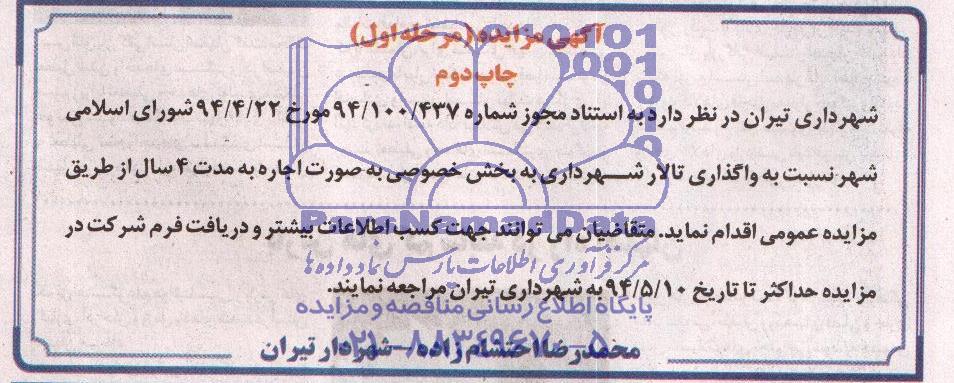 آگهی مزایده (مرحله اول)
چاپ دوم
شهرداری تیران در نظر دارد به استناد مجوز شماره ۹۴/۱۰۰/۴۳۷ مورخ ۹۴/۴/۲۲ شورای اسلامی
شهر نسبت به واگذاری تالار شهرداری به بخش خصوصی به صورت اجاره به مدت ۴ سال از طریق
مزایده عمومی اقدام نماید. متقاضیان می توانند جهت کسب اطلاعات بیشتر و دریافت فرم شرکت در
مزایده حداکثر تا تاریخ ۹۴/۵/۱۰ به شهرداری تیران مراجعه نمایند.
محمدرضا احتشام زاده - شهردار تیران
0101
0001
ParsNamadData
مرکز فرآوری اطلاعات پارس نماد داده ها
پایگاه اطلاع رسانی مناقصه و مزایده